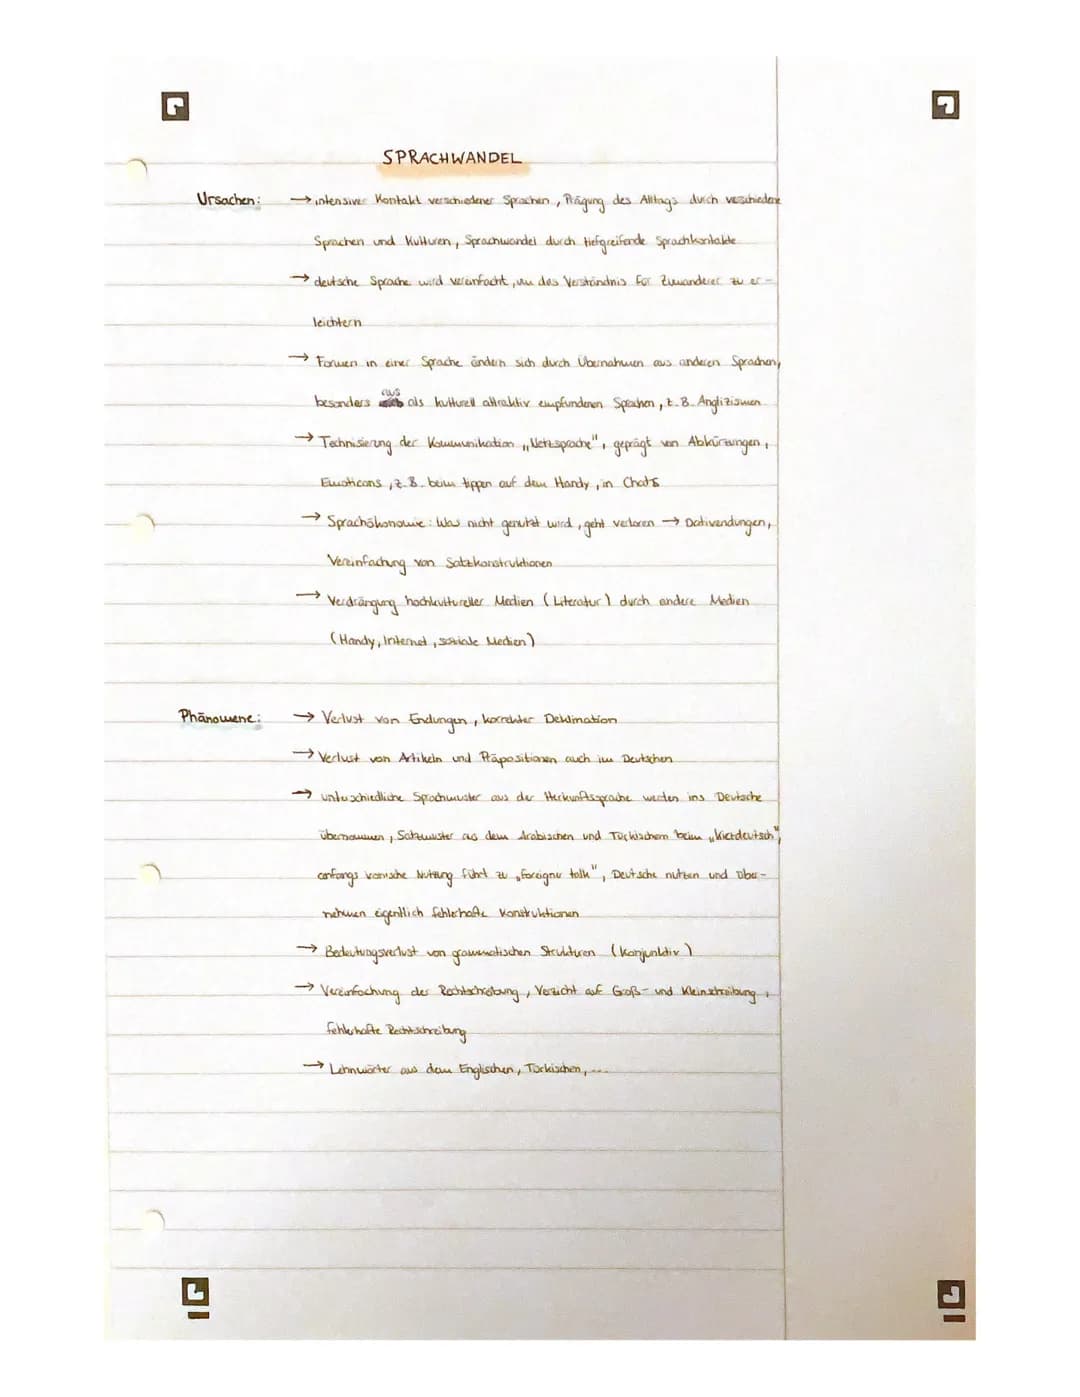 SPRACHWANDEL
Ursachen: → intensiver Kontakt verschiedener Sprachen, Prägung des Alltags durch verschiedene
Sprachen und Kulturen, Sprachwandel durch tiefgreifende Sprachkontakte
→ deutsche Sprache wird vereinfacht, um das Verständnis für Zuwanderer zu er-
leichtern
→ Formen in einer Sprache ändern sich durch Übernahmen aus anderen Sprachen,
besonders aus als kulturell attraktiv empfundenen Sprachen, z.B. Anglizismen
→ Technisierung der Kommunikation „Netzsprache", geprägt von Abkürzungen,
Emoticons, z.B. beim tippen auf dem Handy, in Chats
→ Sprachökonomie: Was nicht genutzt wird, geht verloren → Dativendungen,
Vereinfachung von Satzkonstruktionen
→ Verdrängung hochkultureller Medien (Literatur) durch andere Medien
(Handy, Internet, soziale Medien)
Phänomene: → Verlust von Endungen, korrekter Deklination
→ Verlust von Artikeln und Präpositionen auch im Deutschen
→ unterschiedliche Sprachmuster aus der Herkunftssprache werden ins Deutsche
übernommen, Satzmuster aus dem Arabischen und Türkischem beim „Kiezdeutsch",
anfangs komische Nutzung führt zu „foreigner talk", Deutsche nutzen und über-
nehmen eigentlich fehlerhafte Konstruktionen
→ Bedeutungsverlust von grammatischen Strukturen (Konjunktiv)
→ Vereinfachung der Rechtschreibung, Verzicht auf Groß- und Kleinschreibung,
fehlerhafte Rechtschreibung
→ Lehnwörter aus dem Englischen, Türkischen, ...